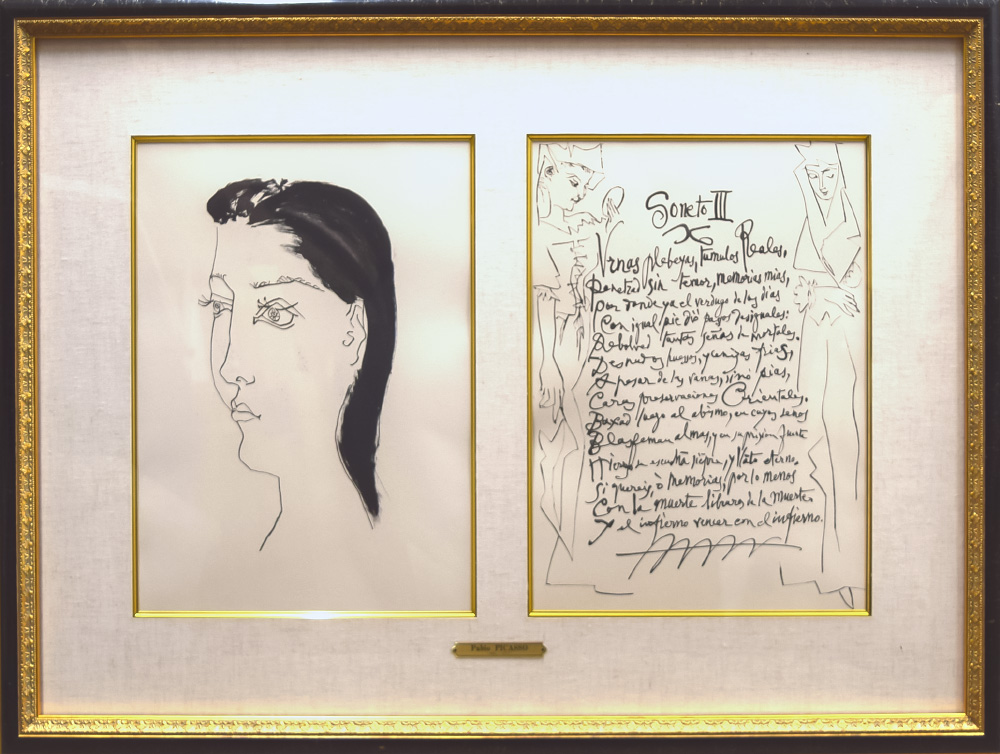 Soneto III
Vrnas plebeyas, tumulos Reales,
Penetrad sin temor, memorias mias,
Por donde ya el verdugo de los dias
Con igual pie diò pasos desiguales:
Rebolved tantas señas de mortales.
Desnudos huessos, y cenizas frias,
A pesar de las vanas, si no pias,
Caras preservaciones Orientales.
Baxad luego al abismo, en cuyos senos
Blasfeman almas, y en su prision fuerte
Hierros se escuchan siempre, y llāto eterno.
Si quereis, ò memorias, por lo menos
Con la muerte libraros de la muerte
Y el infierno vencer con el infierno.
Pablo PICASSO